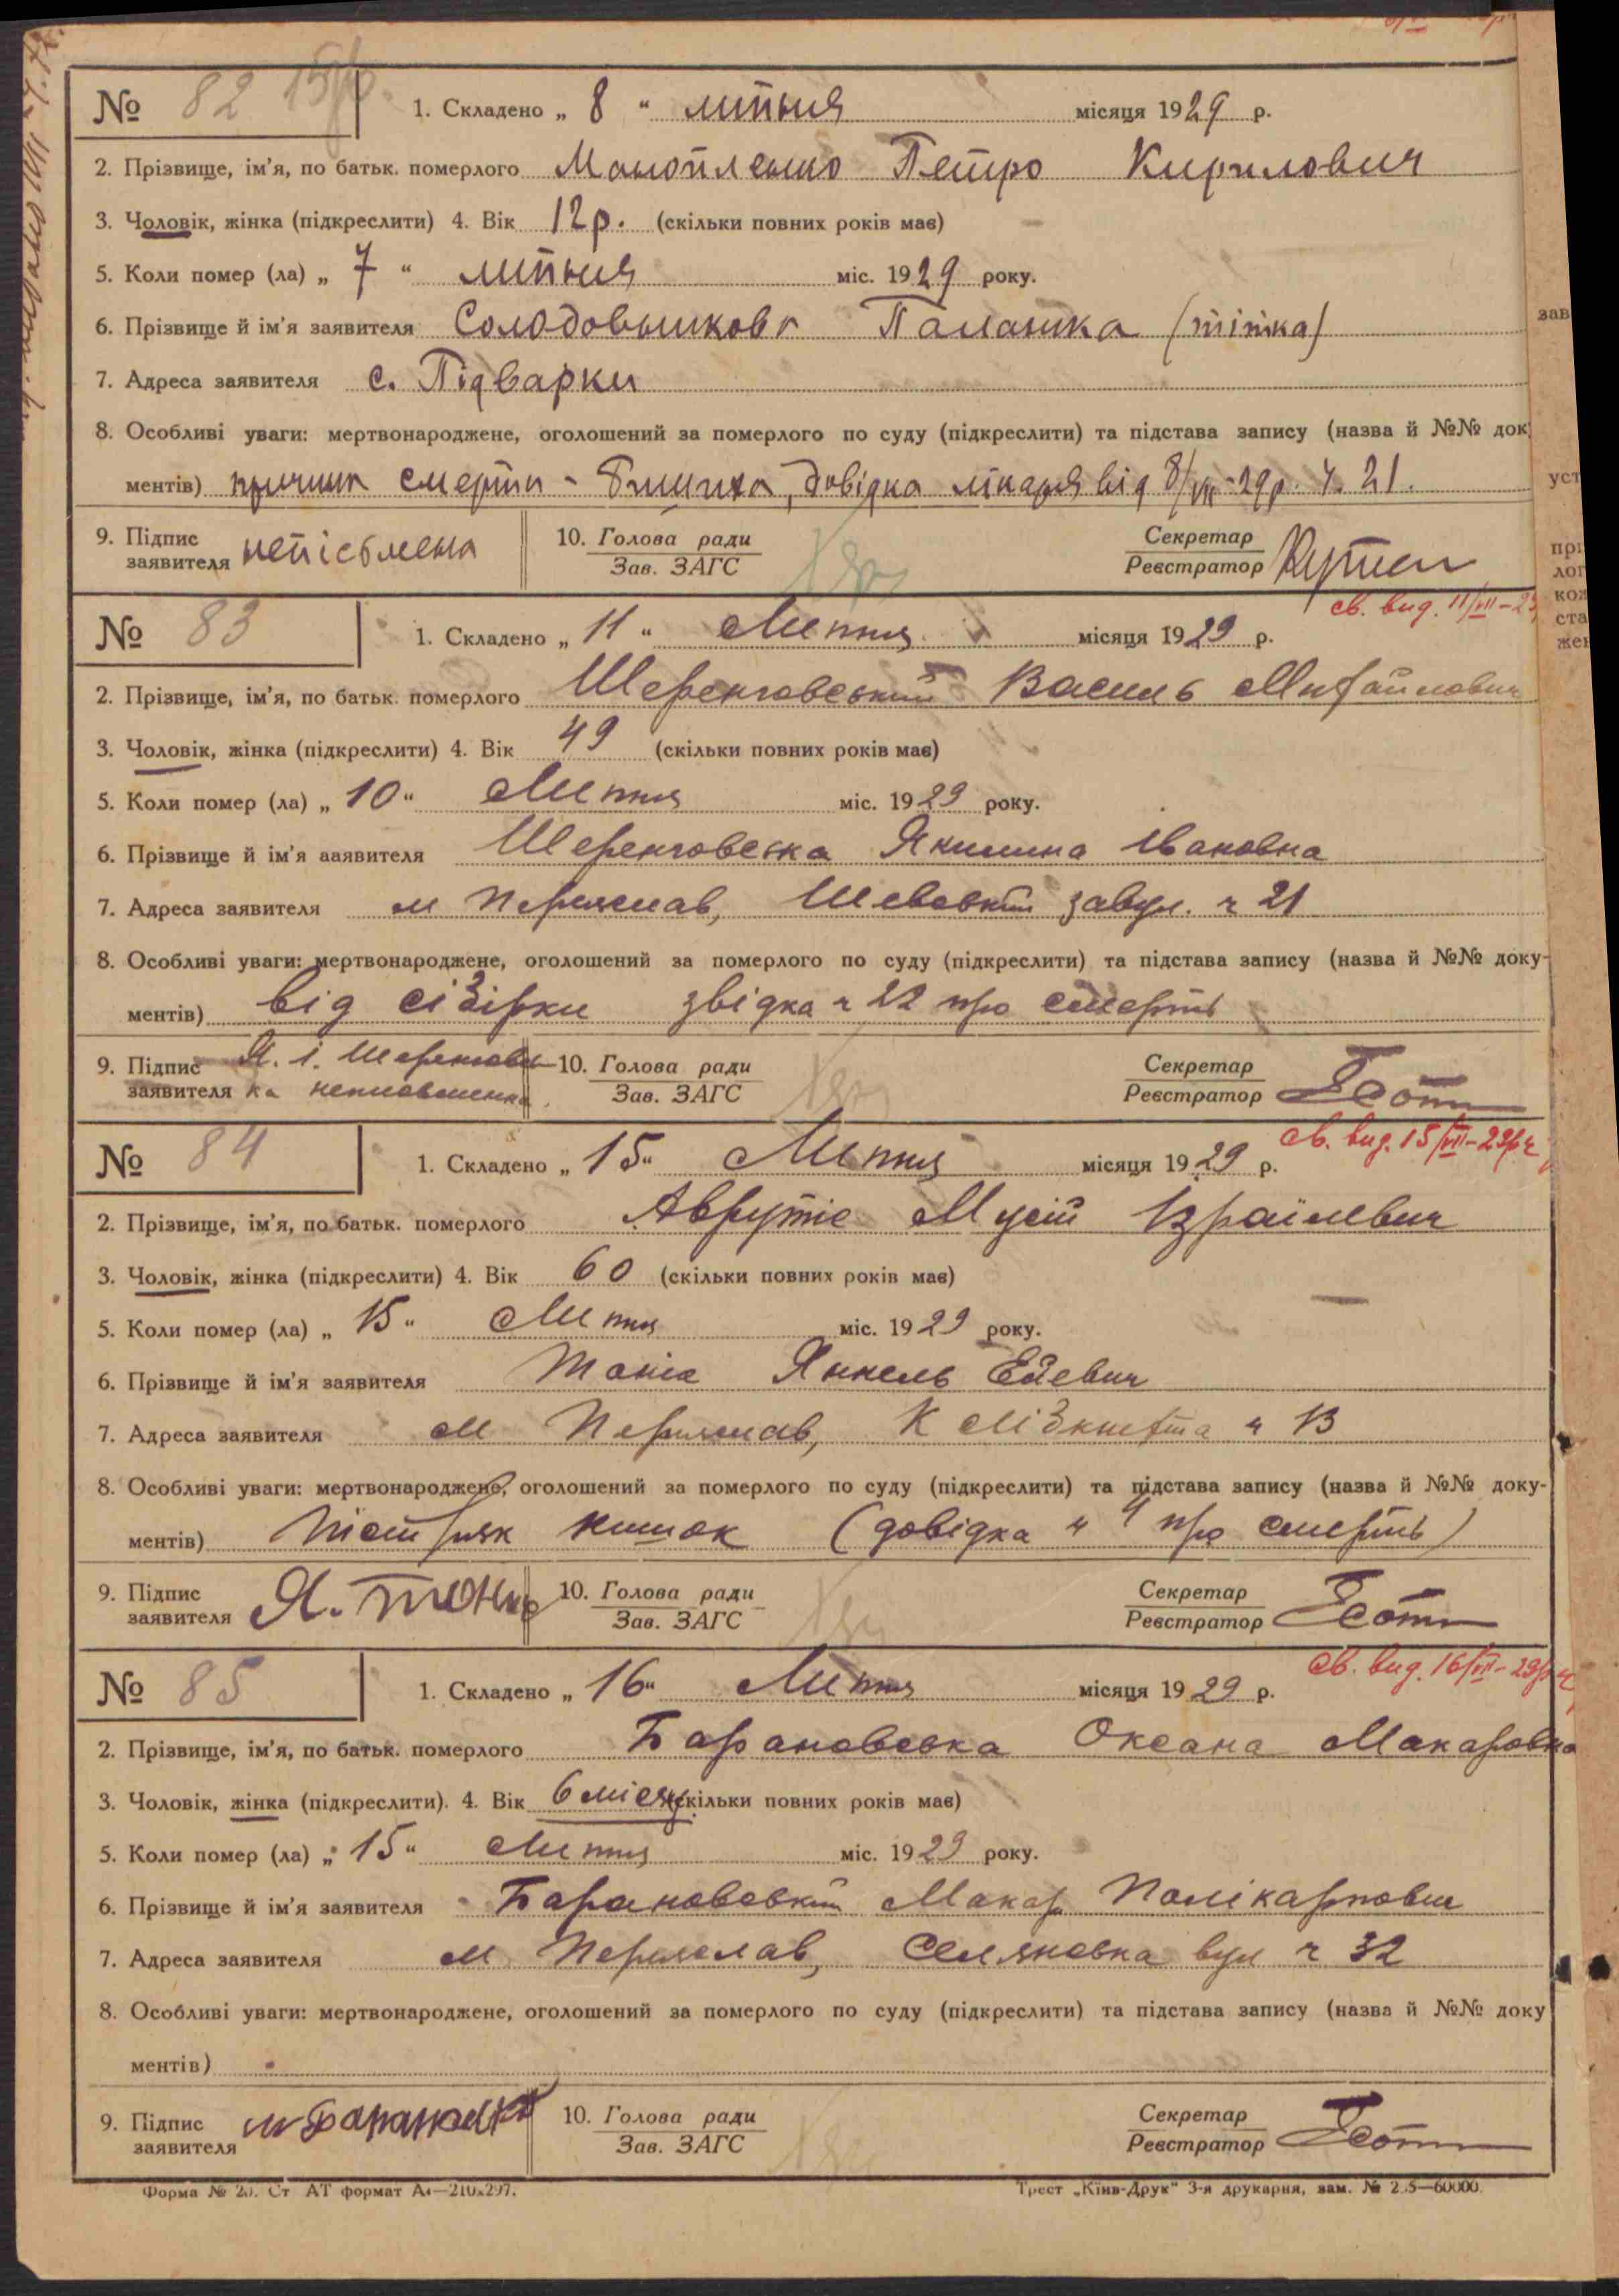 № 82 1. Складено „ 8 “ липня місяця 1929 р.
2. Прізвище, ім’я, по батьк. померлого Петро Кирилович
3. Чоловік, жінка (підкреслити) 4. Вік 12 р. (скільки повних років має)
5. Коли помер (ла) „ 7 “ липня міс. 1929 року.
6. Прізвище й ім’я заявителя Солодовникова Палажка (тітка)
7. Адреса заявителя с. Підварки
8. Особливі уваги: мертвонароджене, оголошений за померлого по суду (підкреслити) та підстава запису (назва й №№ док
ментів) причина смерти - довідка лікаря від 8/VII-29р. Ч. 21.
9. Підпис заявителя непісьмена 10. Голова ради Секретар
Зав. ЗАГС Реєстратор
св. вид. 11/VII-29
№ 83 1. Складено „ 11 “ Липня місяця 1929 р.
2. Прізвище, ім’я, по батьк. померлого Шеренговський Василь Михайлович
3. Чоловік, жінка (підкреслити) 4. Вік 49 (скільки повних років має)
5. Коли помер (ла) „ 10 “ Липня міс. 1929 року.
6. Прізвище й ім’я ааявителя Шеренговська Якилина Івановна
7. Адреса заявителя м Переяслав, завул. ч 21
8. Особливі уваги: мертвонароджене, оголошений за померлого по суду (підкреслити) та підстава запису (назва й №№ доку-
ментів) від сібірки звідка ч 22 про смерть
9. Підпис Я. І. Шеренговсь- 10. Голова ради Секретар
заявителя ка неписьменна Зав. ЗАГС Реєстратор
св. вид. 15/VII-29р ч
№ 84 1. Складено „ 15 “ Липня місяця 1929 р.
2. Прізвище, ім’я, по батьк. померлого Аврутіс Мусій Ізраїлевич
3. Чоловік, жінка (підкреслити) 4. Вік 60 (скільки повних років має)
5. Коли помер (ла) „ 15 “ Липня міс. 1929 року.
6. Прізвище й ім’я заявителя Янкель
7. Адреса заявителя м Переяслав, К Лібкнехта ч 13
8. Особливі уваги: мертвонароджене, оголошений за померлого по суду (підкреслити) та підстава запису (назва й №№ доку-
ментів) кишок (довідка ч 4 про смерть)
9. Підпис 10. Голова ради Секретар
заявителя Зав. ЗАГС Реєстратор
св. вид. 16/VII-29р ч
№ 85 1. Складено „ 16 “ Липня місяця 1929 р.
2. Прізвище, ім’я, по батьк. померлого Барановська Оксана Макаровна
3. Чоловік, жінка (підкреслити). 4. Вік 6 місяц (скільки повних років має)
5. Коли помер (ла) „ 15 “ Липня міс. 1929 року.
6. Прізвище й ім’я заявителя Барановський Макар Полікарпович
7. Адреса заявителя м Переяслав, вул ч 32
8. Особливі уваги: мертвонароджене, оголошений за померлого по суду (підкреслити) та підстава запису (назва й №№ доку
ментів)
9. Підпис 10. Голова ради Секретар
заявителя Зав. ЗАГС Реєстратор
Форма № 20. Ст АТ формат А4—210х297. Трест „Київ-Друк“ 3-я друкарня, зам. № —60000.